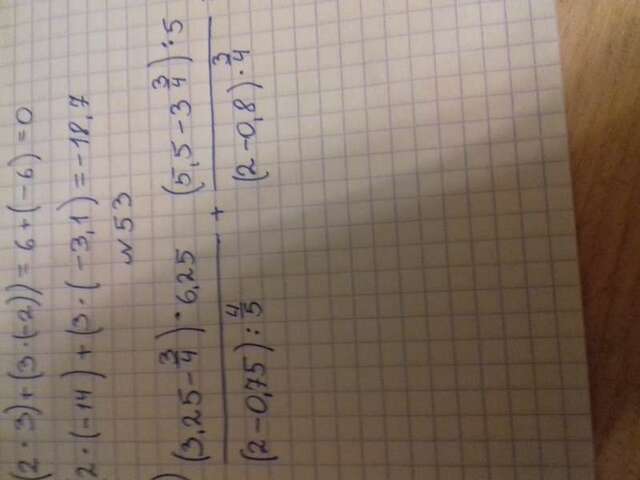 (2·3)+(3·(-2))=6+(-6)=0
2·(-14)+(3·(-3,1)=-18,7
№53
) (3,25-3/4)·6,25 / (2-0,75):4/5 + (5,5-3 3/4):5 / (2-0,8)·3/4